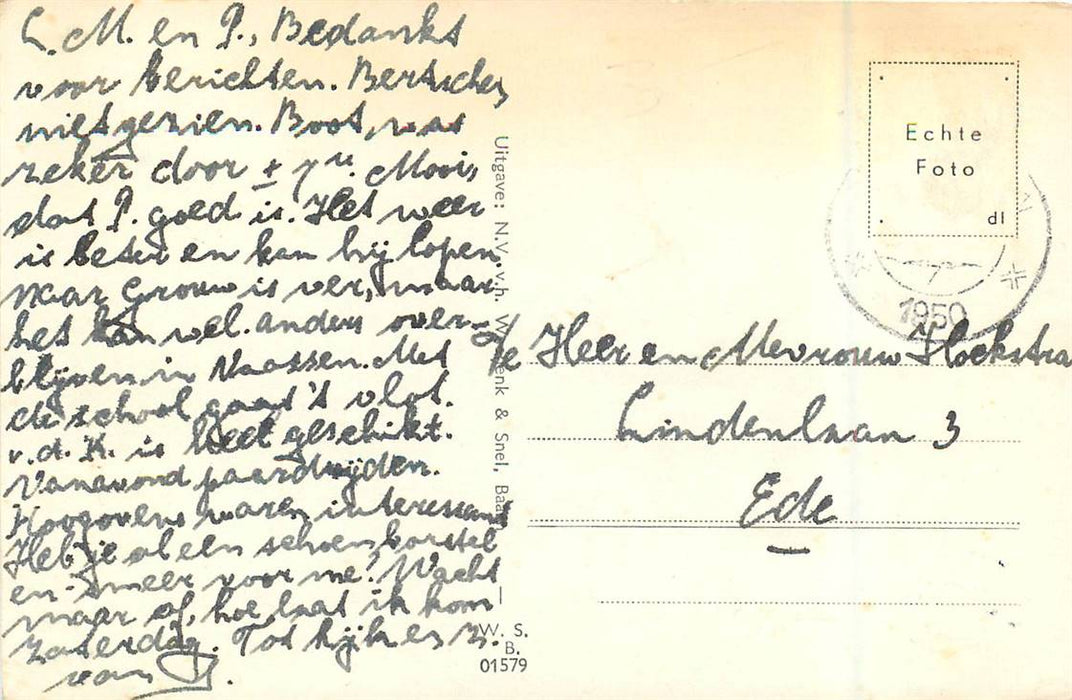 L. M. en P., Bedankt
voor berichten. Bertsche
niet gezien. Boot was
zeker door ± 7 u. Mooi,
dat P. goed is. Het weer
is beter en kan hij lopen.
Naar Grouw is ver, maar
het kan wel. anders over-
blijven in Vaassen. Met
de school gaat 't vlot.
v.d. K. is heel geschikt.
Vanavond paardrijden.
Hoogovens waren interessant
Heb je al een schoenborstel
en -smeer voor me? Wacht
maar af, hoe laat ik kom
Zaterdag. Tot kijk es z.
van
Uitgave: N.V. v.h. W enk & Snel, Baa
W. S.
B.
01579
Echte
Foto
dl
1950
de Heer en Mevrouw Hoekstra
Lindenlaan 3
Ede